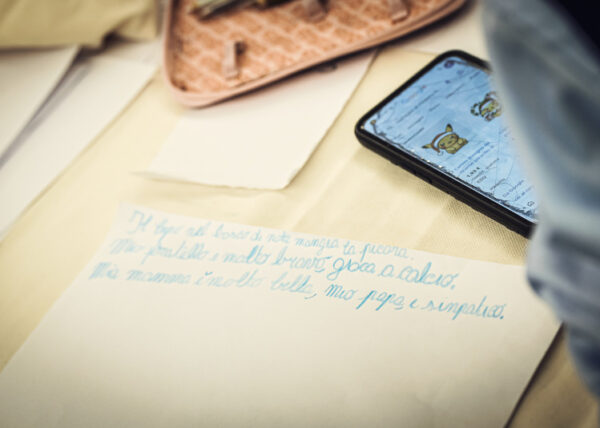 Il lupo nel bosco di notte mangia la pecora.
Mio fratello è molto bravo, gioca a calcio.
Mia mamma è molto bella, mio papà è simpatico.